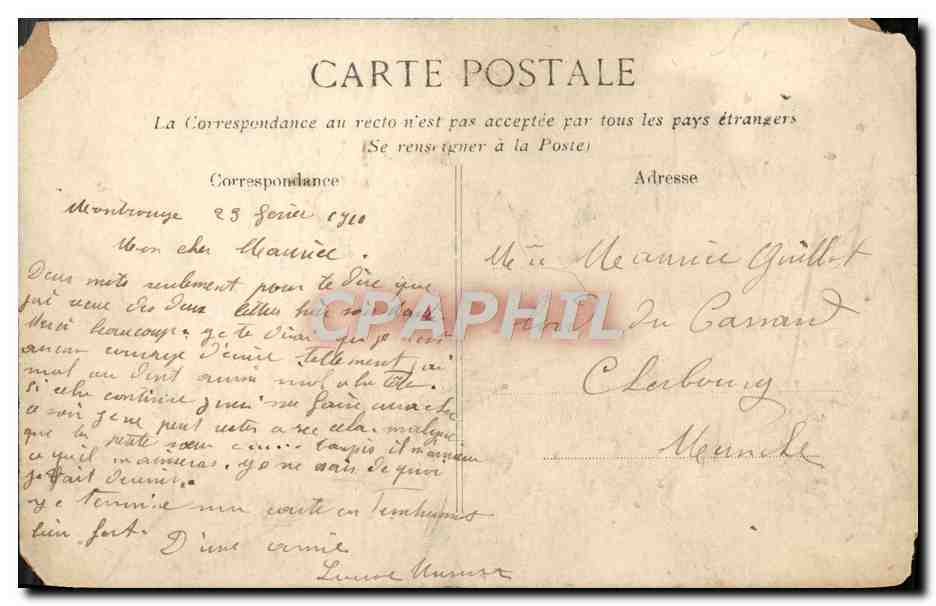 CARTE POSTALE
La Correspondance au recto n'est pas acceptée par tous les pays étrangers
(Se renseigner à la Poste)
Correspondance
Adresse
Montrouge 23 fevrier 1910
Mon cher Maurice.
Deux mots seulement pour te dire que
j'ai recue des deux lettres hier soir
Merci beaucoup. je te dirai que je
aucun courage d'écrire tellement j'ai
mal au dent aussi mal a la tête.
si cela continue j'irai me faire arracher
ce soir je ne peut rester avec cela. malgré
que la petite sœur
ce qu'il m'aimeras. je ne sais de quoi
je fait
je termine ma carte en
bien fort.
D'une amie
Louise
Maurice Guillot
du Cassard
Cherbourg
Manche
CPAPHIL